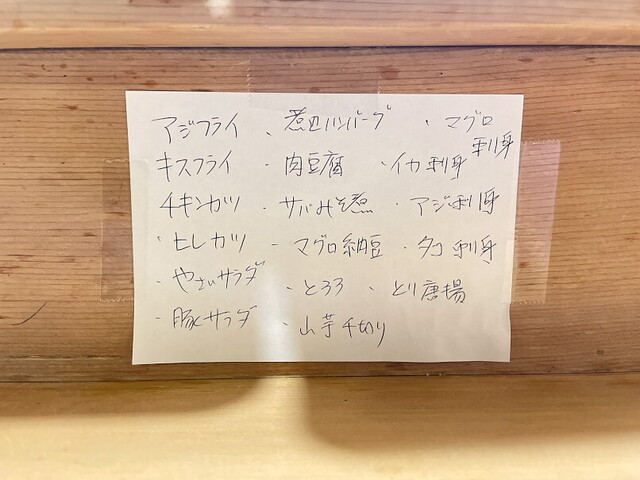 アジフライ ・煮込ハンバーグ ・マグロ刺身
キスフライ ・肉豆腐 ・イカ刺身
チキンカツ ・サバみそ煮 ・アジ刺身
・ヒレカツ ・マグロ納豆 ・タコ刺身
・やさいサラダ ・とろろ ・とり唐揚
・豚サラダ ・山芋千切り